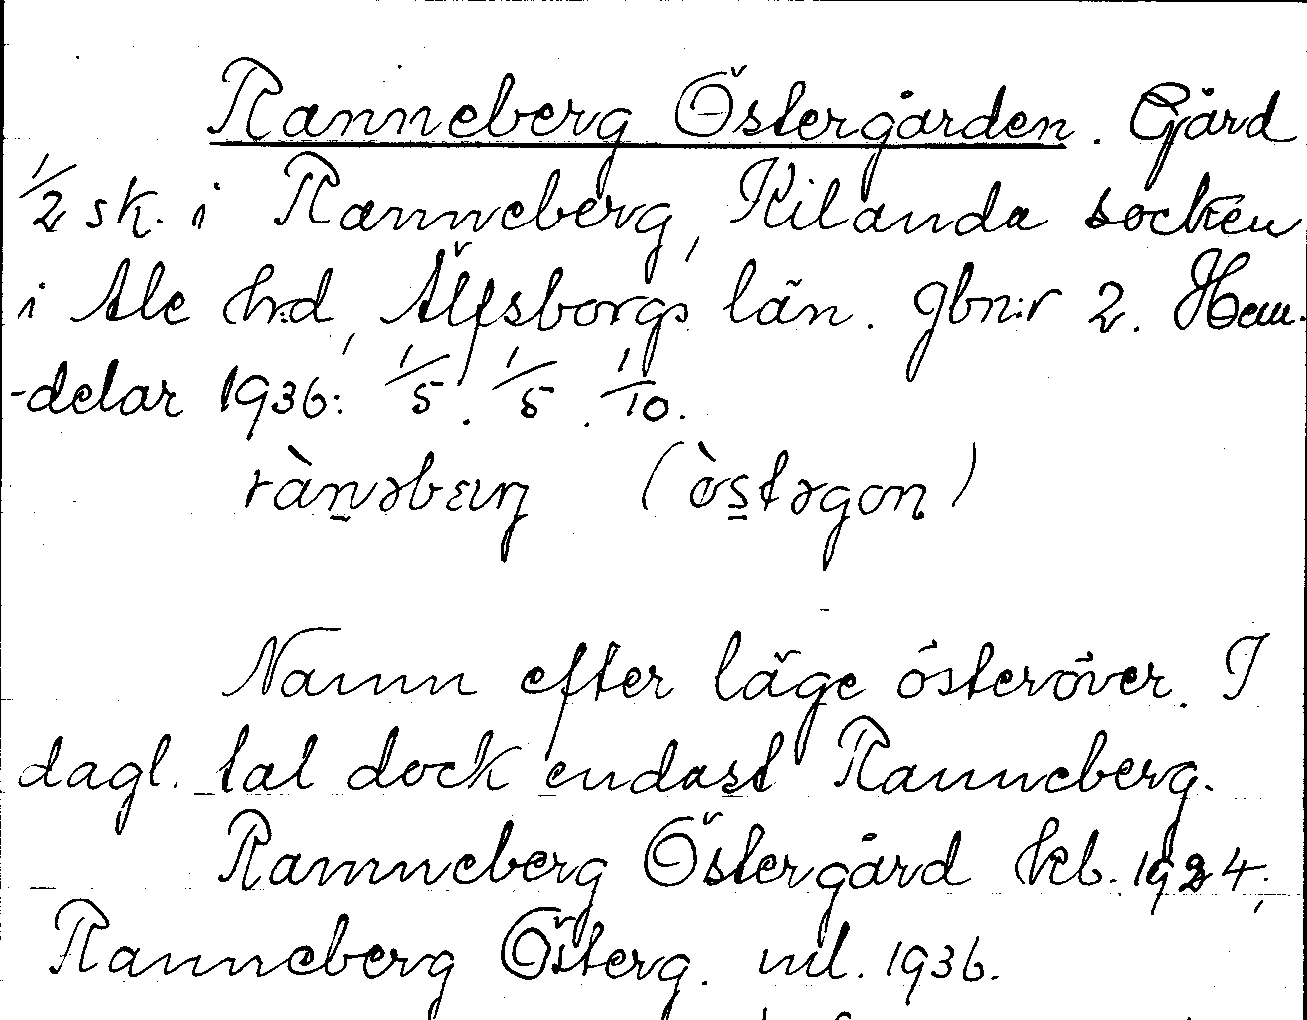 Ranneberg Östergården. Gård
1/2 sk. i Ranneberg, Kilanda socken
i Ale hd, Älfsborgs län. Jbn:r 2. Hem-
-delar 1936: 1/5. 1/5. 1/10.
rànəbærj (òstəgoɳ)
Namn efter läge österöver. I
dagl. tal dock endast Ranneberg.
Ranneberg Östergård kb. 1924,
Ranneberg Österg. ml. 1936.